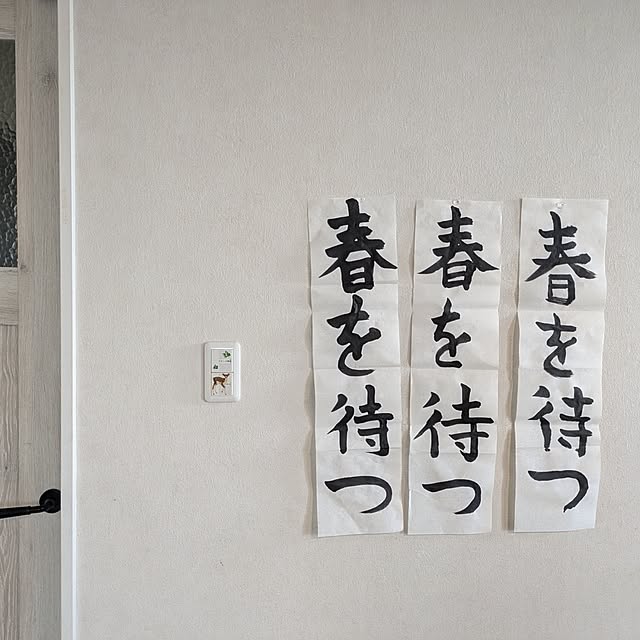 春を待つ
春を待つ
春を待つ